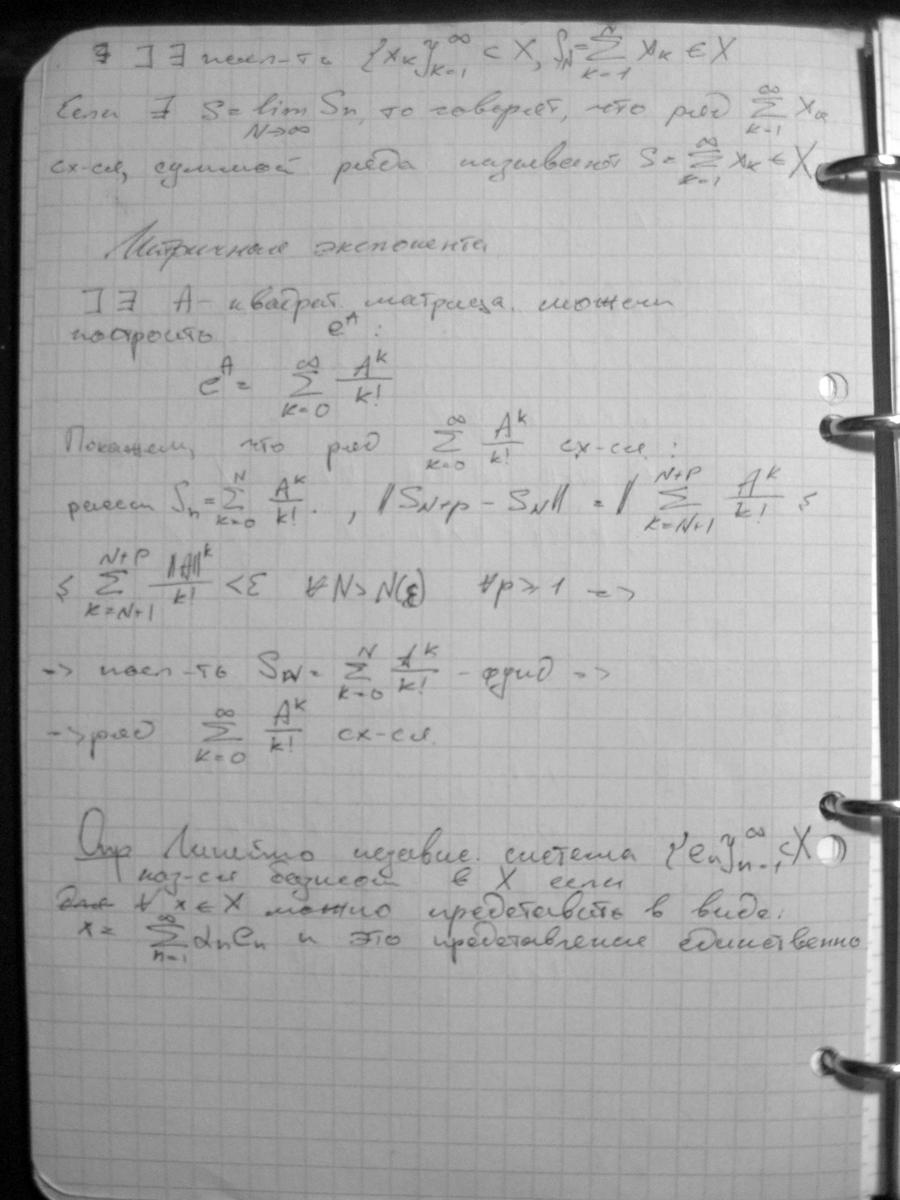 ∃ ] ∃ посл-ть {xₖ}ₖ₌₁^∞ ⊂ X, S_N = ∑ₖ₌₁^N xₖ ∈ X
Если ∃ S = lim_{N→∞} Sₙ, то говорят, что ряд ∑ₖ₌₁^∞ xₖ
сх-ся, суммой ряда называют S = ∑ₖ₌₁^∞ xₖ ∈ X
Матричная экспонента
] ∃ A - квадрат. матрица. можем
построить e^A :
e^A = ∑ₖ₌₀^∞ A^k/k!
Покажем, что ряд ∑ₖ₌₀^∞ A^k/k! сх-ся :
Sₙ = ∑ₖ₌₀^N A^k/k! , ‖S_{N+p} - S_N‖ = ‖∑_{k=N+1}^{N+P} A^k/k! ≤
≤ ∑_{k=N+1}^{N+P} ‖A‖^k/k! < ε ∀N > N(ε) ∀p ≥ 1 =>
=> посл-ть S_N = ∑ₖ₌₀^N A^k/k! - фунд =>
=> ряд ∑ₖ₌₀^∞ A^k/k! сх-ся.
Опр Линейно независ. система {eₙ}ₙ₌₁^∞ ⊂ X
наз-ся базисом в X если
∀ x ∈ X можно представить в виде:
x = ∑ₙ₌₁^∞ αₙeₙ и это представление единственно